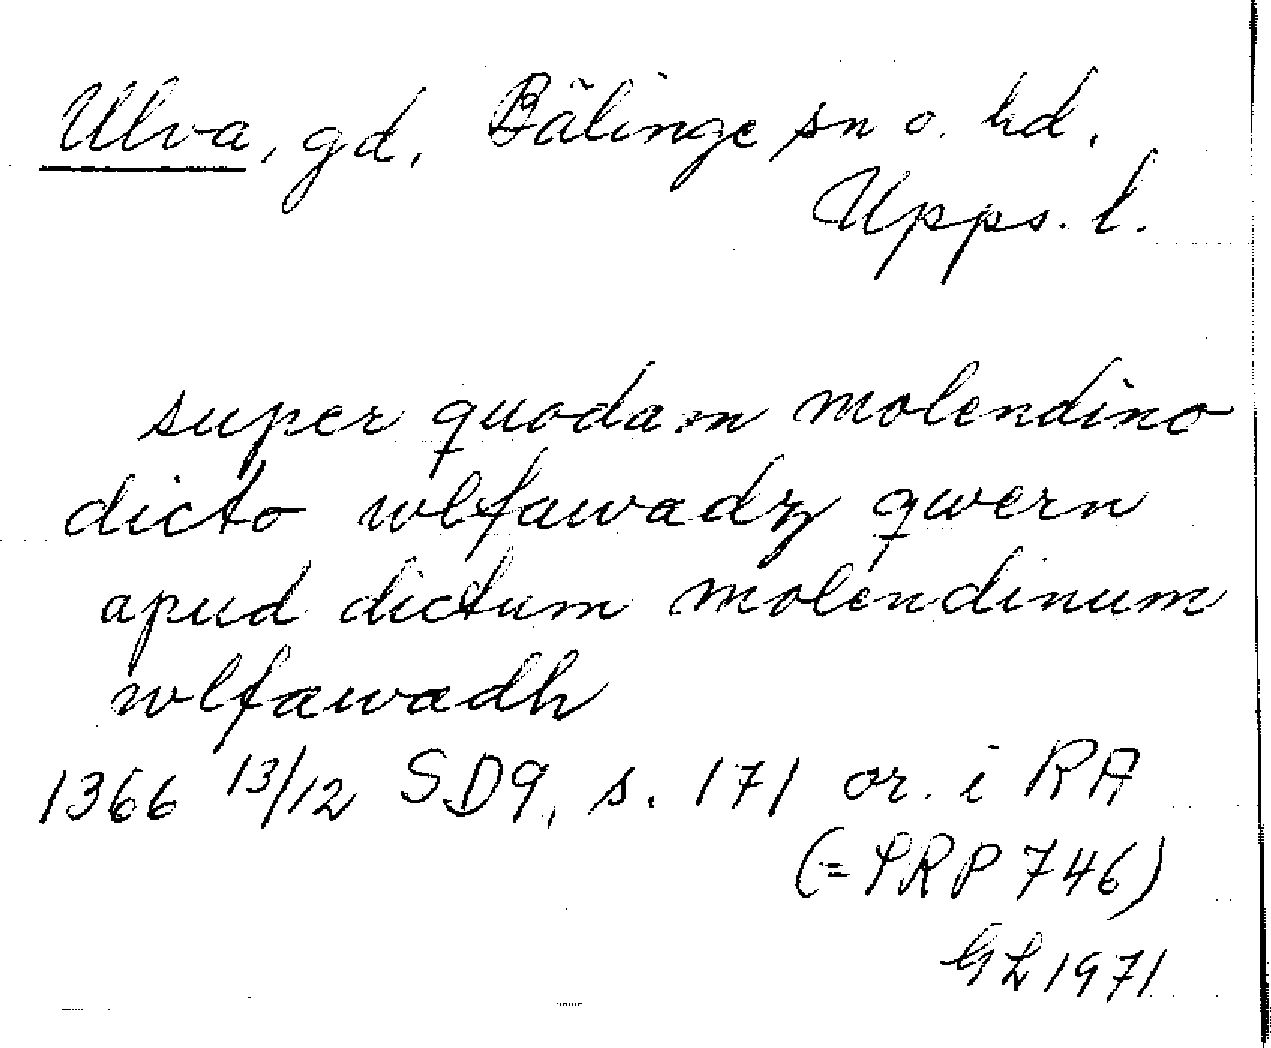 Ulva, gd, Bälinge sn o. hd.
Upps. l.
super quodam molendino
dicto wlfawadz qwern
apud dictum molendinum
wlfawadh
1366 13/12 SD9, s. 171 or. i RA
(=PRP 746)
GL 1971